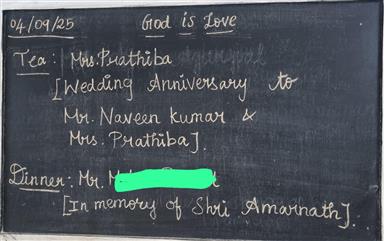 04/09/25 God is Love
Tea: Mrs. Prathiba
[Wedding Anniversary to
Mr. Naveen kumar &
Mrs. Prathiba].
Dinner: Mr.
[In memory of Shri Amarnath].